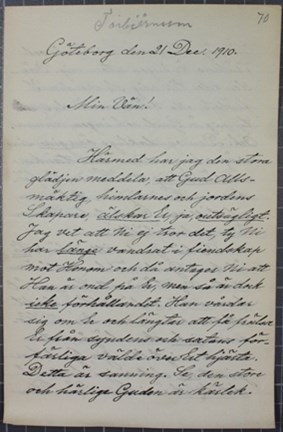 70
Göteborg den 21 Dec. 1910.
Min Vän!
Härmed har jag den stora
glädjen meddela, att Gud Alls-
mäktig, himlarnes och jordens
Skapare, älskar Er, ja, outsägligt.
Jag vet att Ni ej tror det, ty Ni
har länge vandrat i fiendskap
mot Honom och då antager Ni att
Han är ond på Er, men så är dock
icke förhållandet. Han vårdar
sig om Er och längtar att få frälsa
Er från syndens och satans för-
färliga välde över Ert hjärta.
Detta är sanning. Se, den store
och härlige Guden är kärlek.